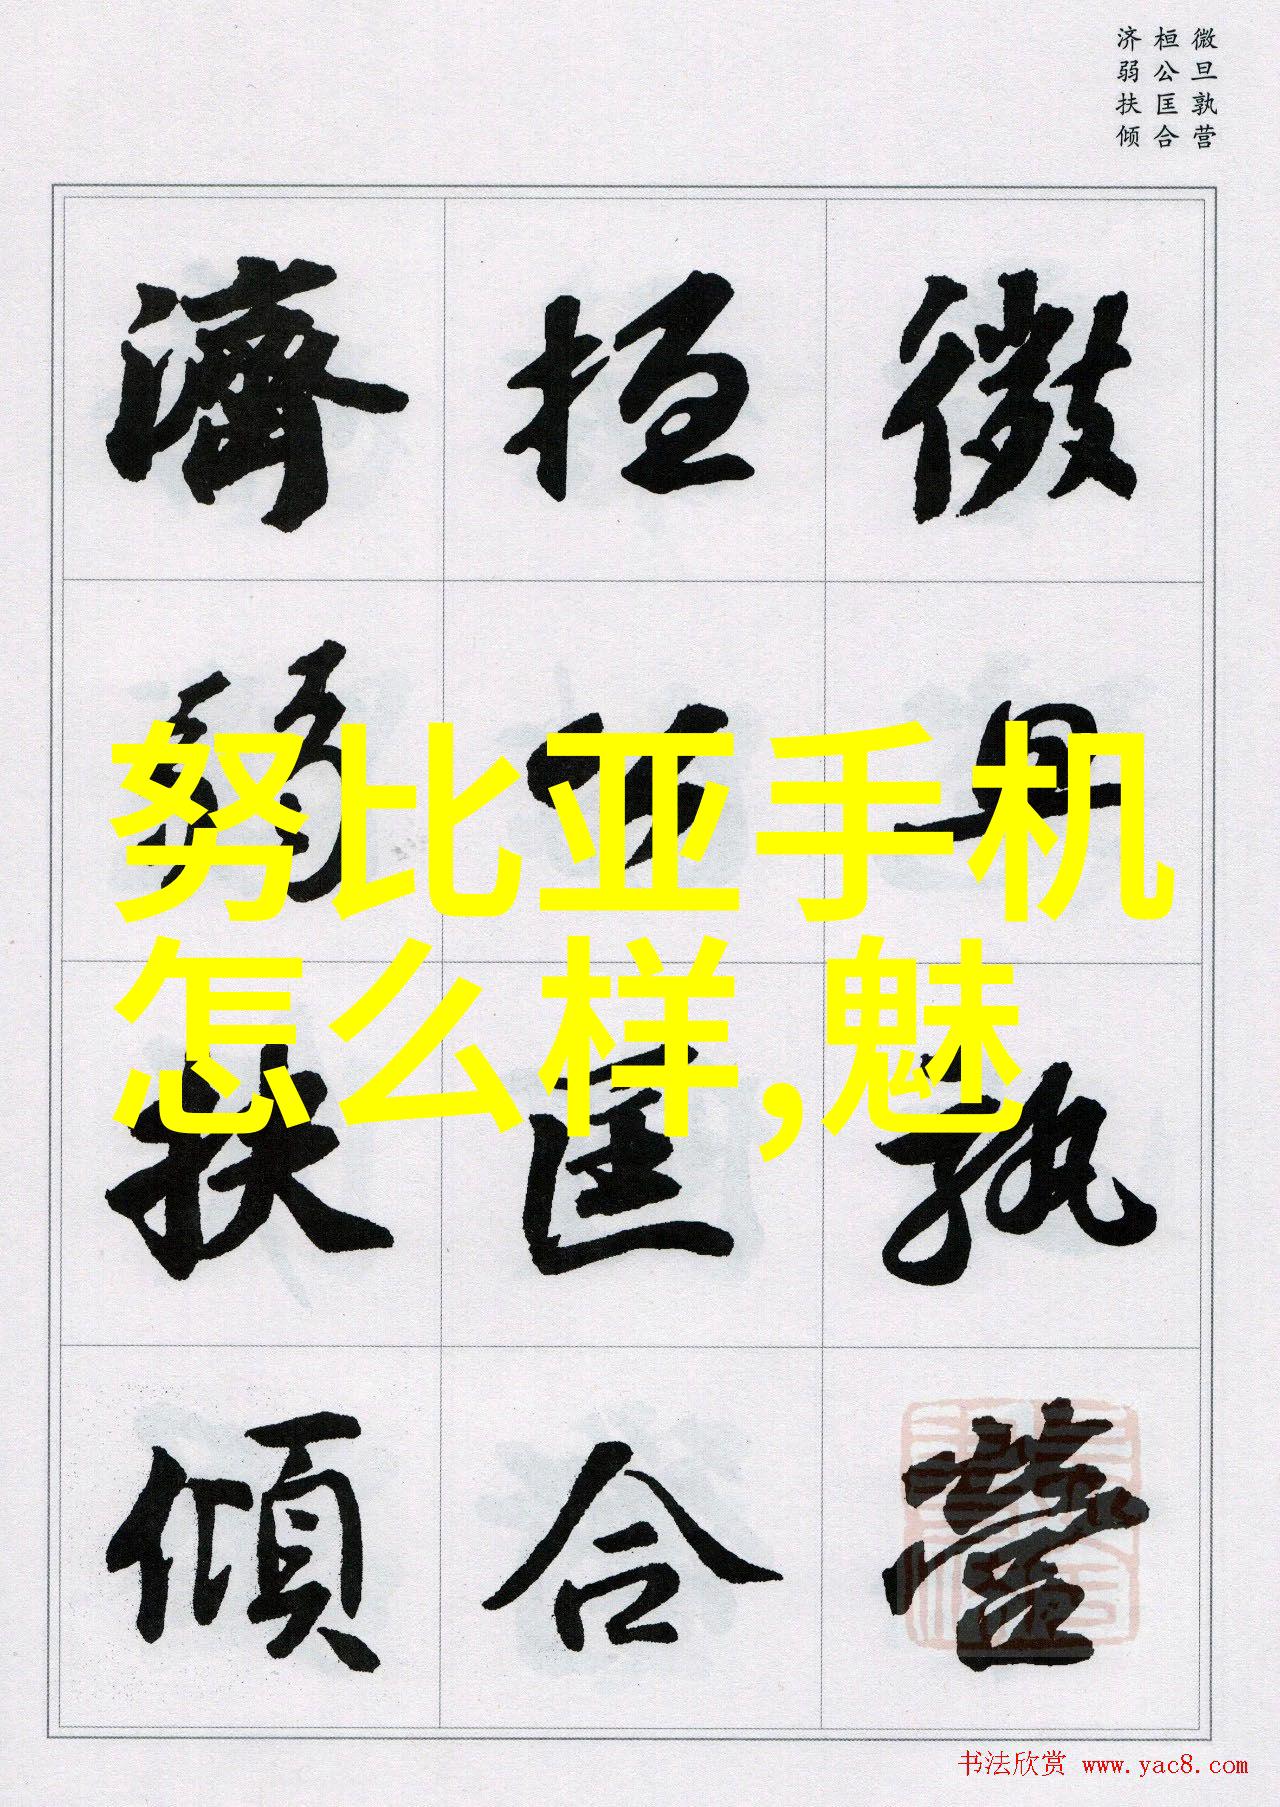 微旦孰营
桓公匡合
济弱扶倾
微旦孰營
桓公匡合
濟弱扶傾
努比亚手机
怎么样,魅
书法欣赏 www.yac8.com